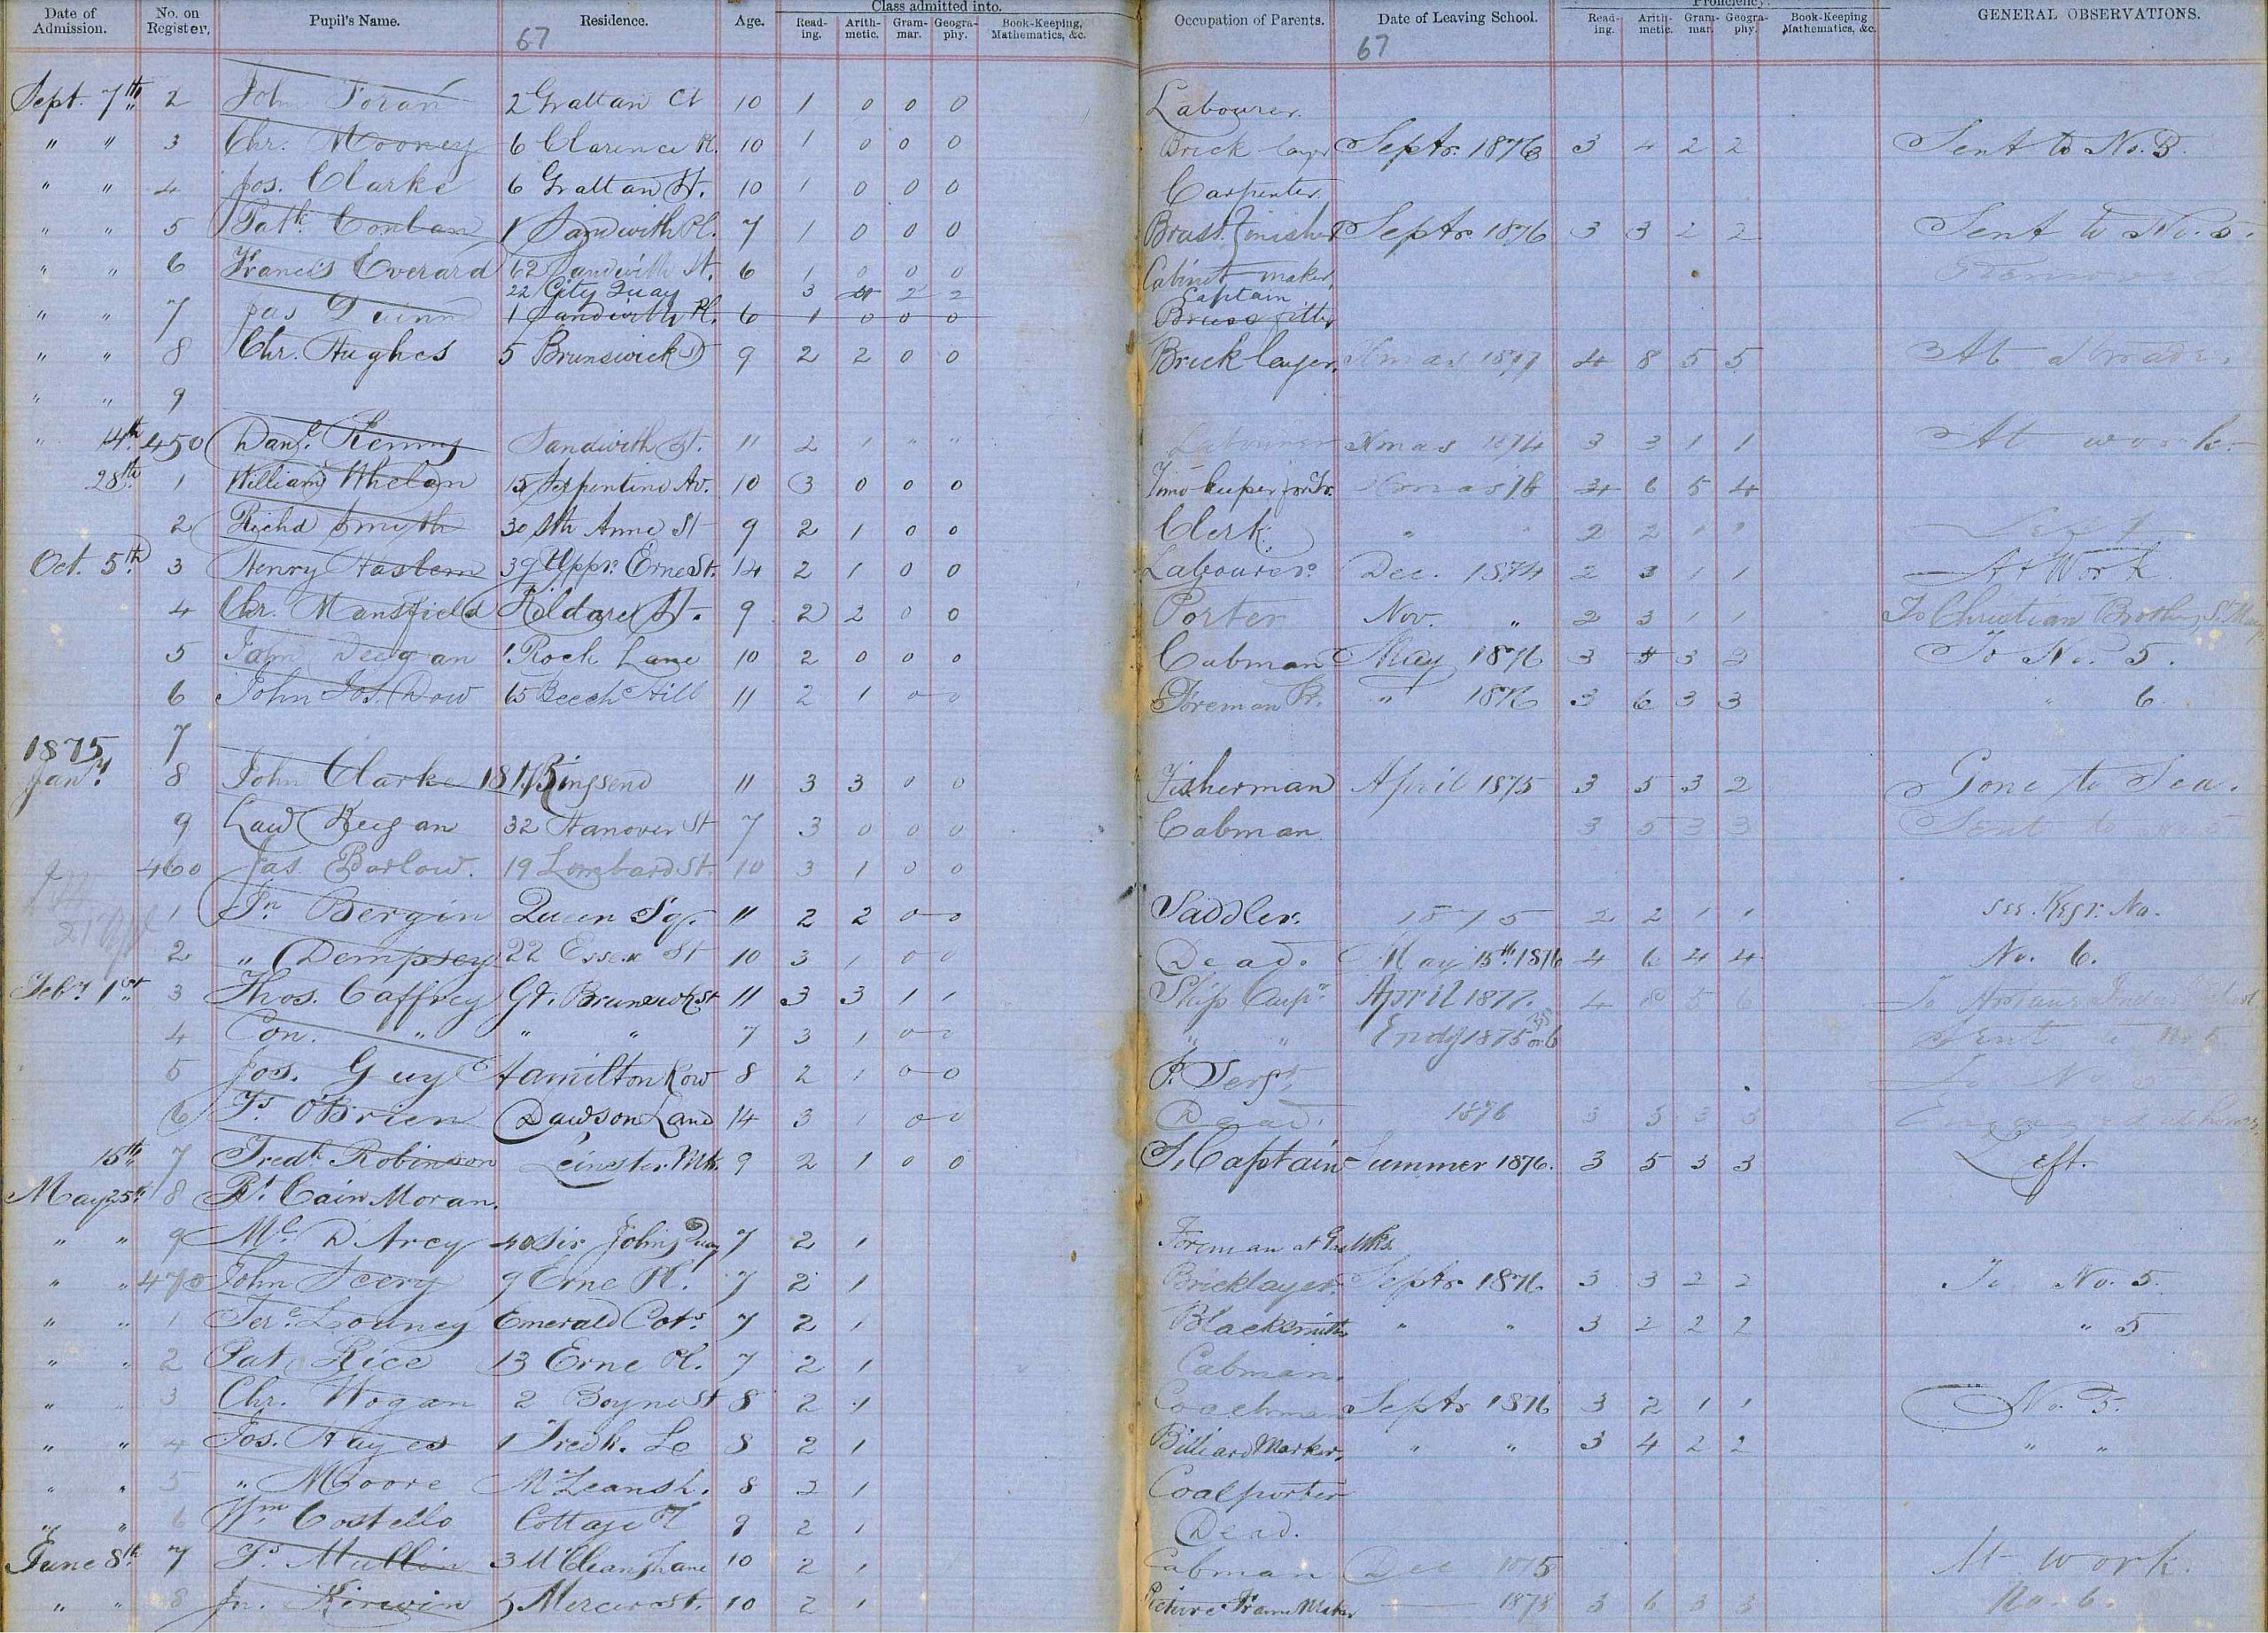 Date of Admission. No. on Register, Pupil's Name. Residence. Age. Class admitted into. Read-ing. Arith-metic. Gram-mar. Geogra-phy. Book-Keeping, Mathematics, &c. Occupation of Parents. Date of Leaving School. Proficiency. Read-ing. Arith-metic. Gram-mar. Geogra-phy. Book-Keeping Mathematics, &c. GENERAL OBSERVATIONS.
67 67
Sept. 7th 2 John Toran 2 Grattan Ct 10 1 0 0 0 Labourer.
" " 3 Chr. Mooney 6 Clarence Pl. 10 1 0 0 0 Brick layer Septr. 1876 3 4 2 2 Sent to No. 5.
" " 4 Jos. Clarke 6 Grattan St. 10 1 0 0 0 Carpenter.
" " 5 Patk. Conlan 1 Sandwith Pl. 7 1 0 0 0 Brass Finisher Septr 1876 3 3 2 2 Sent to No. 5.
" " 6 Francis Everard 62 Sandwith St. 6 1 0 0 0 Cabinet maker.
22 City Quay 3 4 2 2 Captain
" " 7 Jas Quinn 1 Sandwith Pl. 6 1 0 0 0 Brass fitter
" " 8 Chr. Hughes 5 Brunswick St 9 2 2 0 0 Brick layer. Xmas 1877 4 8 5 5 At a trade.
" " 9
" 14th 450 Danl. Kenny Sandwith St. 11 2 1 " " Labourer Xmas 1874 3 3 1 1 At work.
28th 1 William Whelan 15 Serpentine Av. 10 3 0 0 0 Time keeper Xmas 6 5 4
2 Richd Smyth 30 Sth Anne St 9 2 1 0 0 Clerk. " " 2 2 1 1 Left
Oct. 5th 3 Henry Haslem 39 Uppr. Erne St. 14 2 1 0 0 Labourer. Dec. 1874 2 3 1 1 At Work.
4 Chr. Mansfield Kildare St. 9 2 2 0 0 Porter Nov. " 2 3 1 1 To Christian Brothers
5 John Deegan 1 Rock Lane 10 2 0 0 0 Cabman May 1876 3 5 3 2 To No. 5.
6 John Jos. Dow 65 Beech Hill 11 2 1 0 0 Foreman Pr. " 1876 3 6 3 3 " 6.
1875 7
Jany 8 John Clarke 18 Ringsend 11 3 3 0 0 Fisherman April 1875 3 5 3 2 Gone to Sea.
9 Law Keegan 32 Hanover St 7 3 0 0 0 Cabman 3 5 3 3 Sent to
460 Jas. Barlow. 19 Lombard St. 10 3 1 0 0
1 Jn Bergin Queen Sq. 11 2 2 0 0 Saddler. 1875 2 2 1 1 see. Regr. No.
2 " Dempsey 22 Essex St 10 3 1 0 0 Dead. May 15th 1876 4 6 4 4 No. 6.
Feby 1st 3 Thos. Caffrey Gt. Brunswick St 11 3 3 1 1 Ship Carpr April 1877. 4 5 6 To Artane Indus. School
4 Con. " " " 7 3 1 0 0 " " End of 1875 or 6 Sent to No. 5
5 Jos. Guy Hamilton Row 8 2 1 0 0 P. Sergt. To No
6 Ts O'Brien Dawson Lane 14 3 1 0 0 Dead. 1876 3 5 3 3 Engaged at home
15th 7 Fredk Robinson Leinster Mkt. 9 2 1 0 0 S. Captain Summer 1876. 3 5 3 3 Left.
May 25th 8 Pt. Cain Moran.
" " 9 Ml D'Arcy 40 Sir John's Quay 7 2 1 Foreman at Gas Wks.
" " 470 John Seery 9 Erne Pl. 7 2 1 Bricklayer. Septr. 1876. 3 3 2 2 To No. 5.
" " 1 Ter. Looney Emerald Cots 7 2 1 Blacksmith " " 3 2 2 2 " 5
" " 2 Pat Rice 13 Erne Pl. 7 2 1 Cabman.
" " 3 Chr. Hogan 2 Boyne St 8 2 1 Coachman Septr 1876 3 2 1 1 No. 5.
" " 4 Jos. Hayes 1 Fredk. La 8 2 1 Billiard Marker. " " 3 4 2 2 " "
" " 5 " Moore McLeansh. 8 2 1 Coalporter
" " 6 Wm Costello Cottage Pl 9 2 1 Dead.
June 8th 7 Ts Mullin 3 McClean's Lane 10 2 1 Cabman Dec 1875 At work.
" " 8 Jn. Kirwin 5 Mercer St. 10 2 1 Picture Frame Maker 1878 3 6 3 3 No. 6.